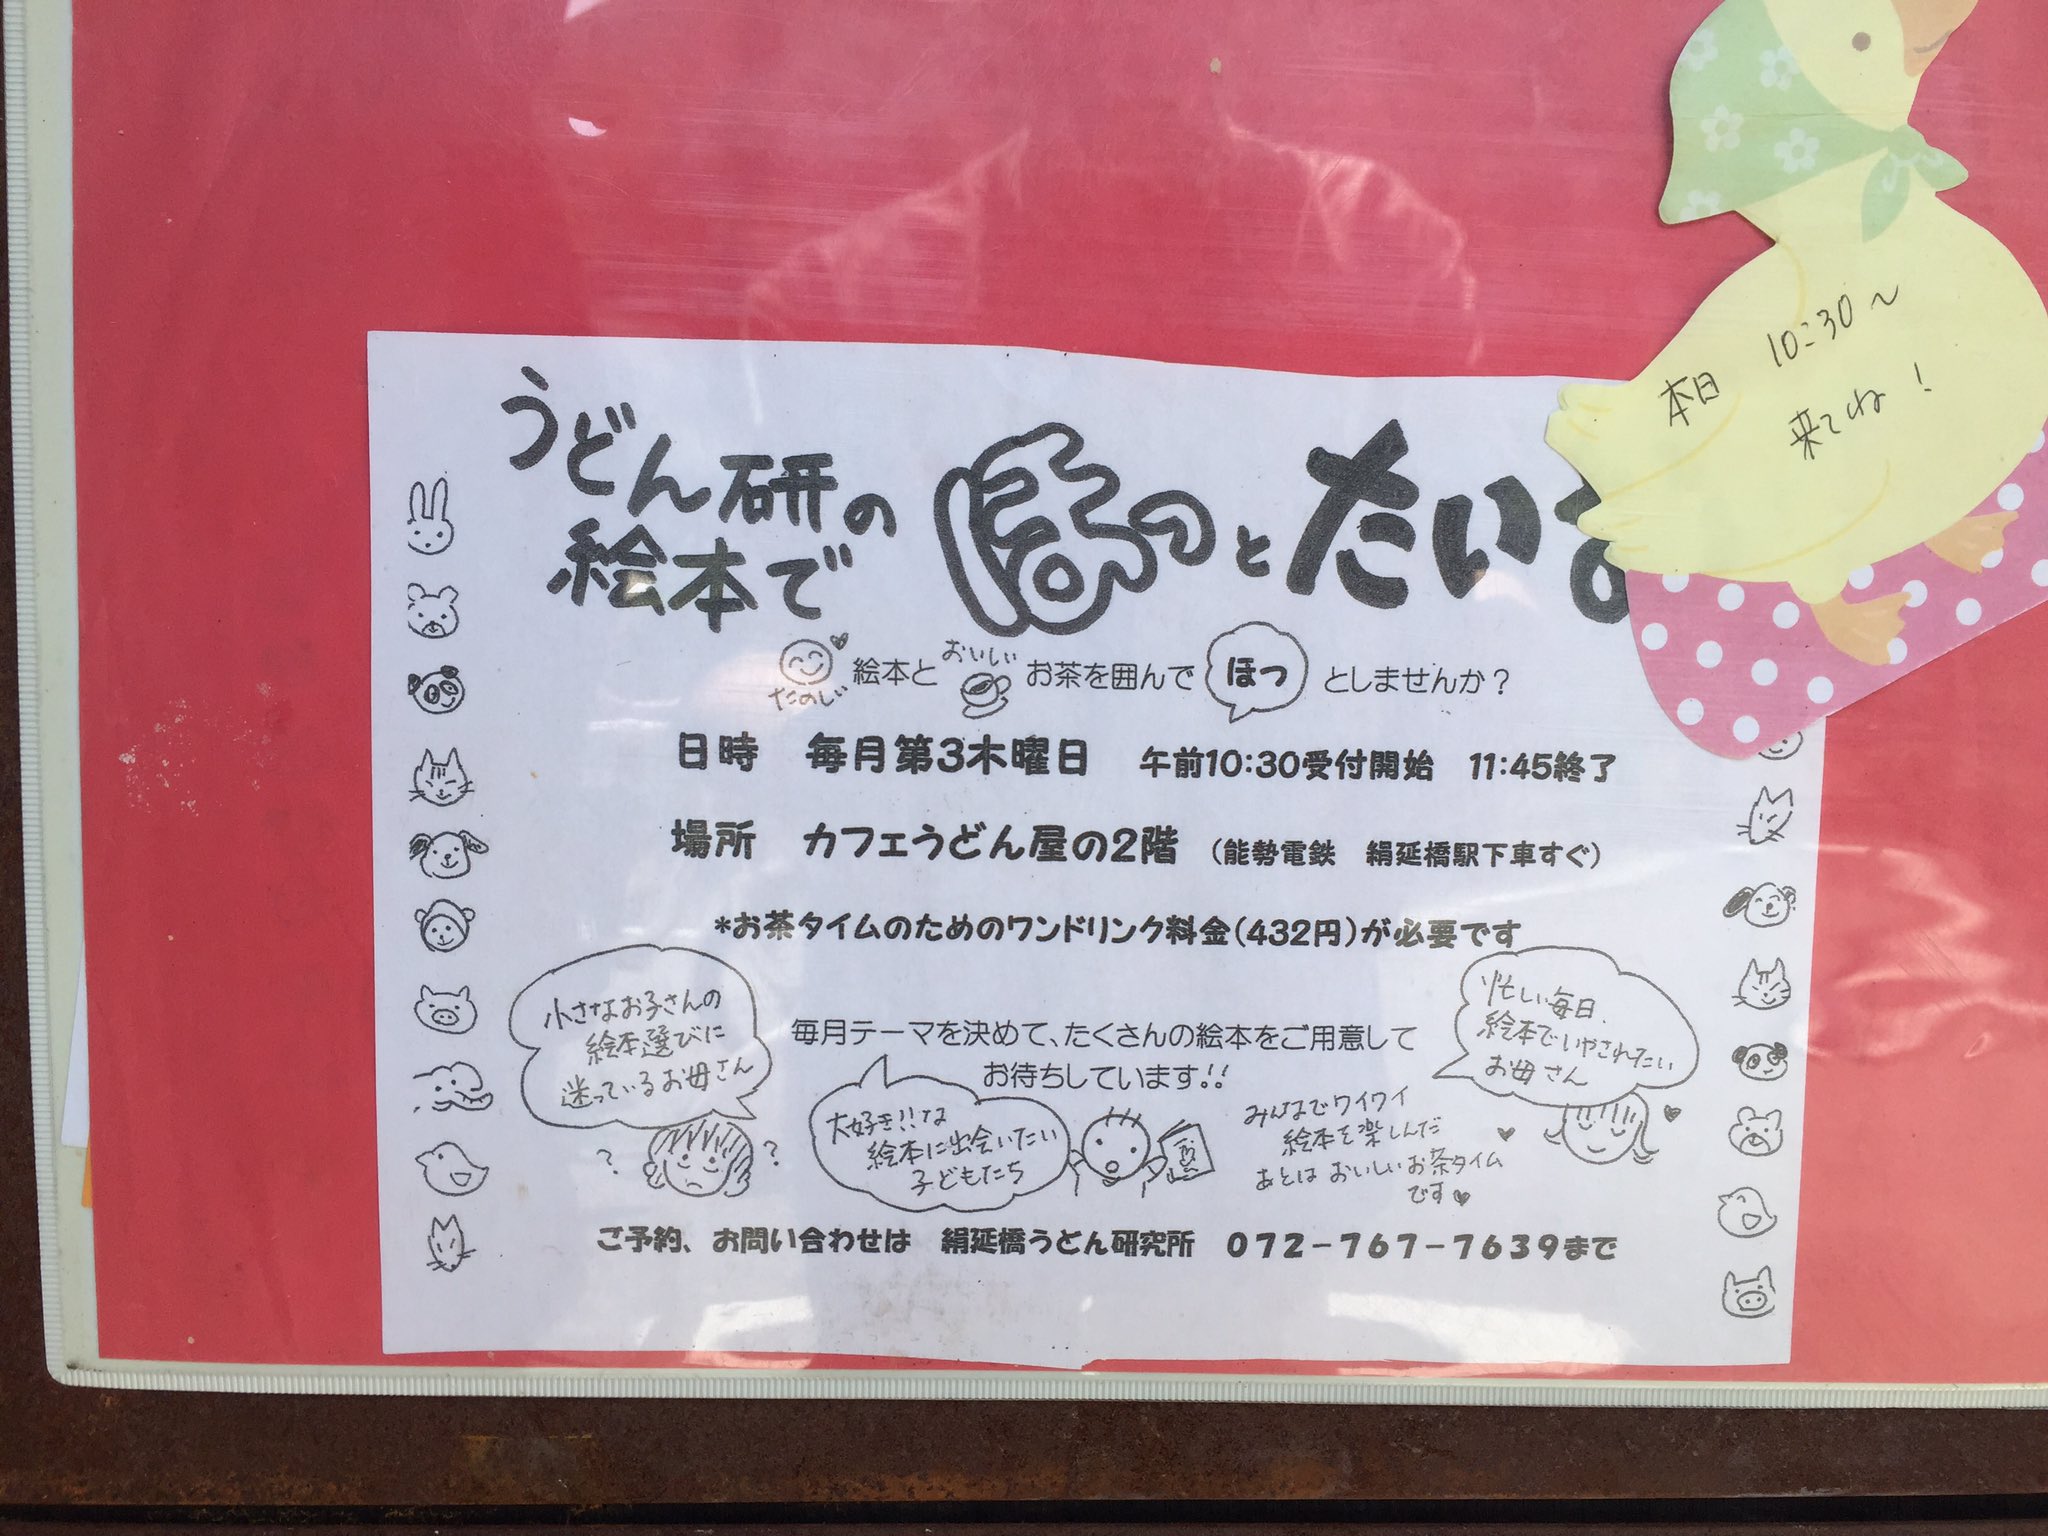 本日 10:30～
来てね！
うどん研の
絵本で
ほっとたい
たのしい 絵本と おいしい お茶を囲んで ほっ としませんか？
日時 毎月第3木曜日 午前10:30受付開始 11:45終了
場所 カフェうどん屋の2階 （能勢電鉄 絹延橋駅下車すぐ）
*お茶タイムのためのワンドリンク料金（432円）が必要です
小さなお子さんの
絵本選びに
迷っているお母さん
毎月テーマを決めて、たくさんの絵本をご用意して
お待ちしています!!
忙しい毎日、
絵本でいやされたい
お母さん
大好き!!な
絵本に出会いたい
子どもたち
みんなでワイワイ
絵本を楽しんだ
あとは おいしいお茶タイム
です♥
？ ？
ご予約、お問い合わせは 絹延橋うどん研究所 072-767-7639まで